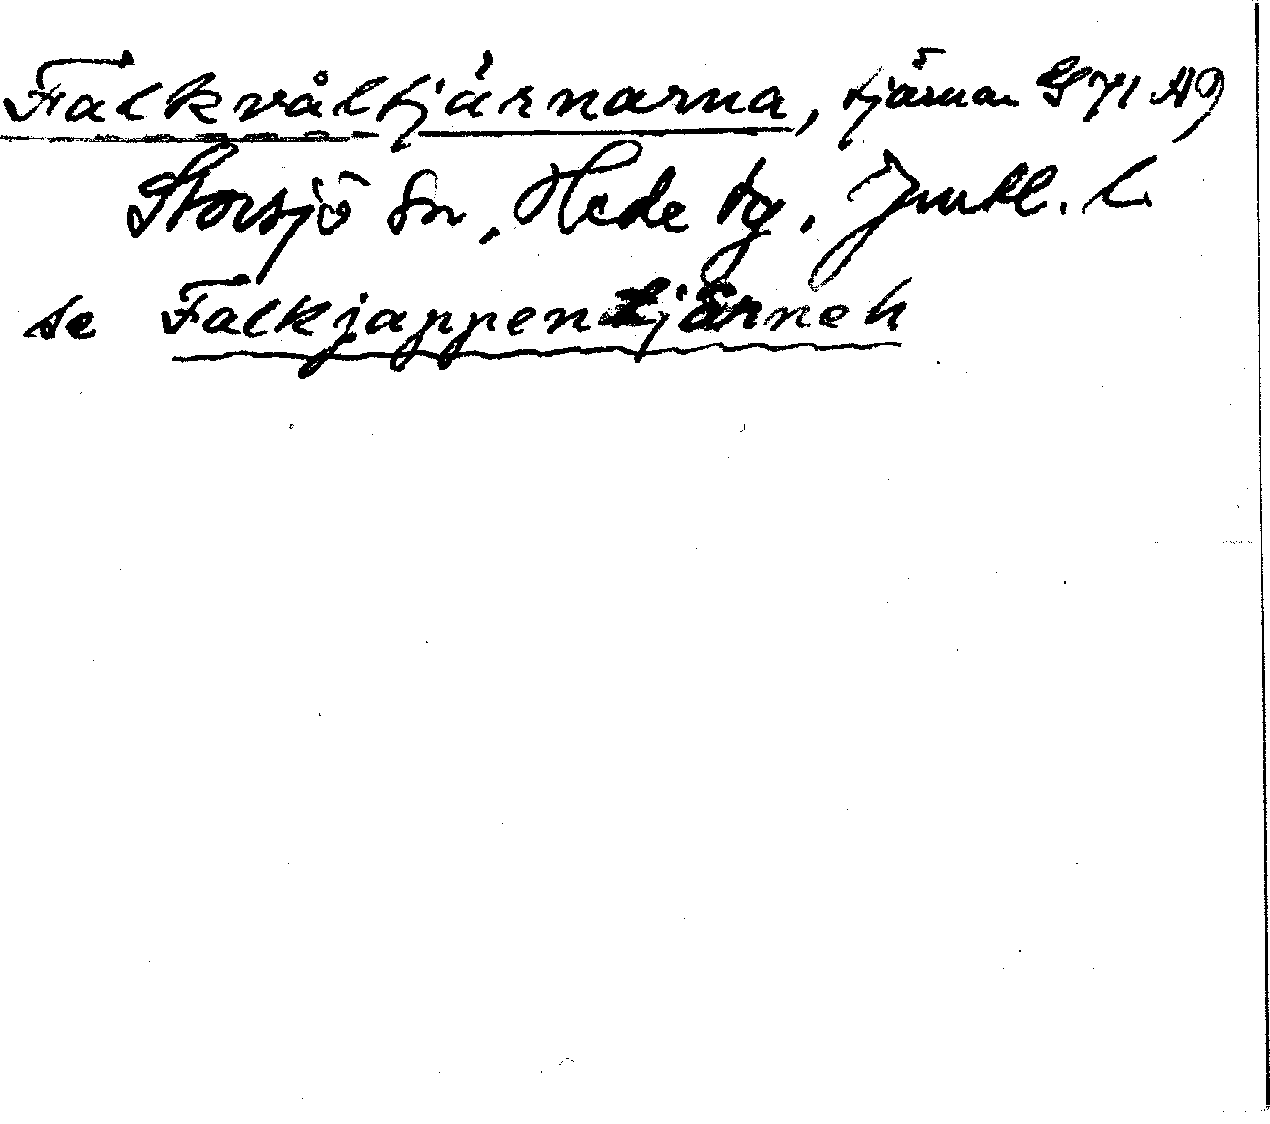 Falkvåltjärnarna, tjärnar G 71 A9
Storsjö sn, Hede tg. Jmtl. L
se Falkjappentjärneh